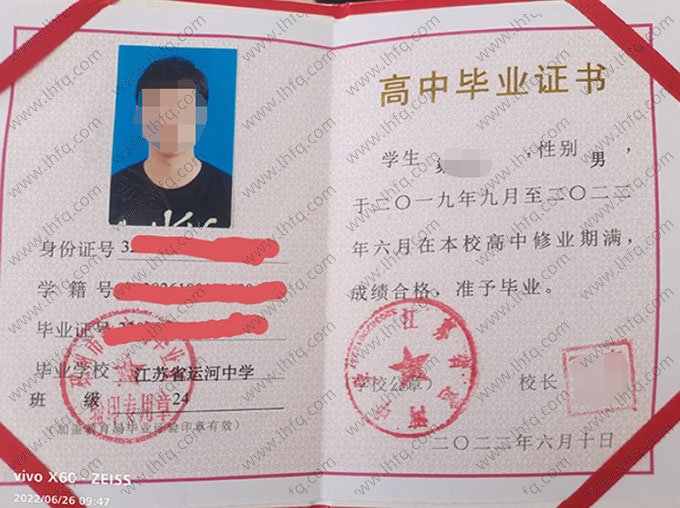 身份证号 32
学籍号
毕业证号
毕业学校 江苏省运河中学
班级 24
(加盖教育局毕业证验印章有效)
验印专用章
高中毕业证书
学生 ，性别 男，
于二〇一九年九月至二〇二二
年六月在本校高中修业期满，
成绩合格，准予毕业。
(学校公章) 校长
二〇二二年六月十日
vivo X60 ZEISS
2022/06/26 09:47
www.lhfq.com